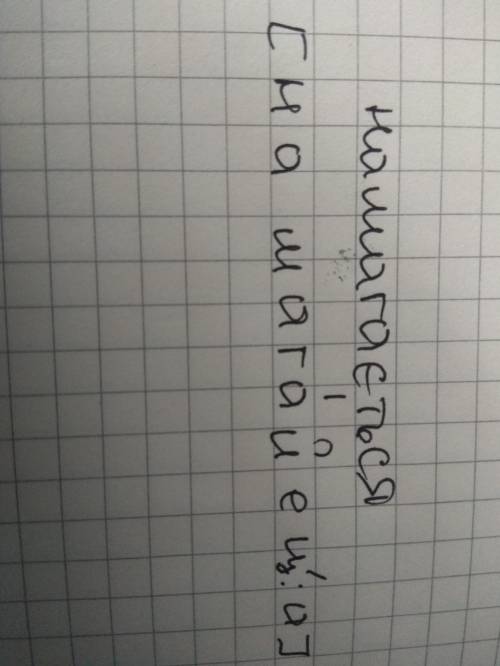 намагається
[н а м а г а́ й е ц':а]